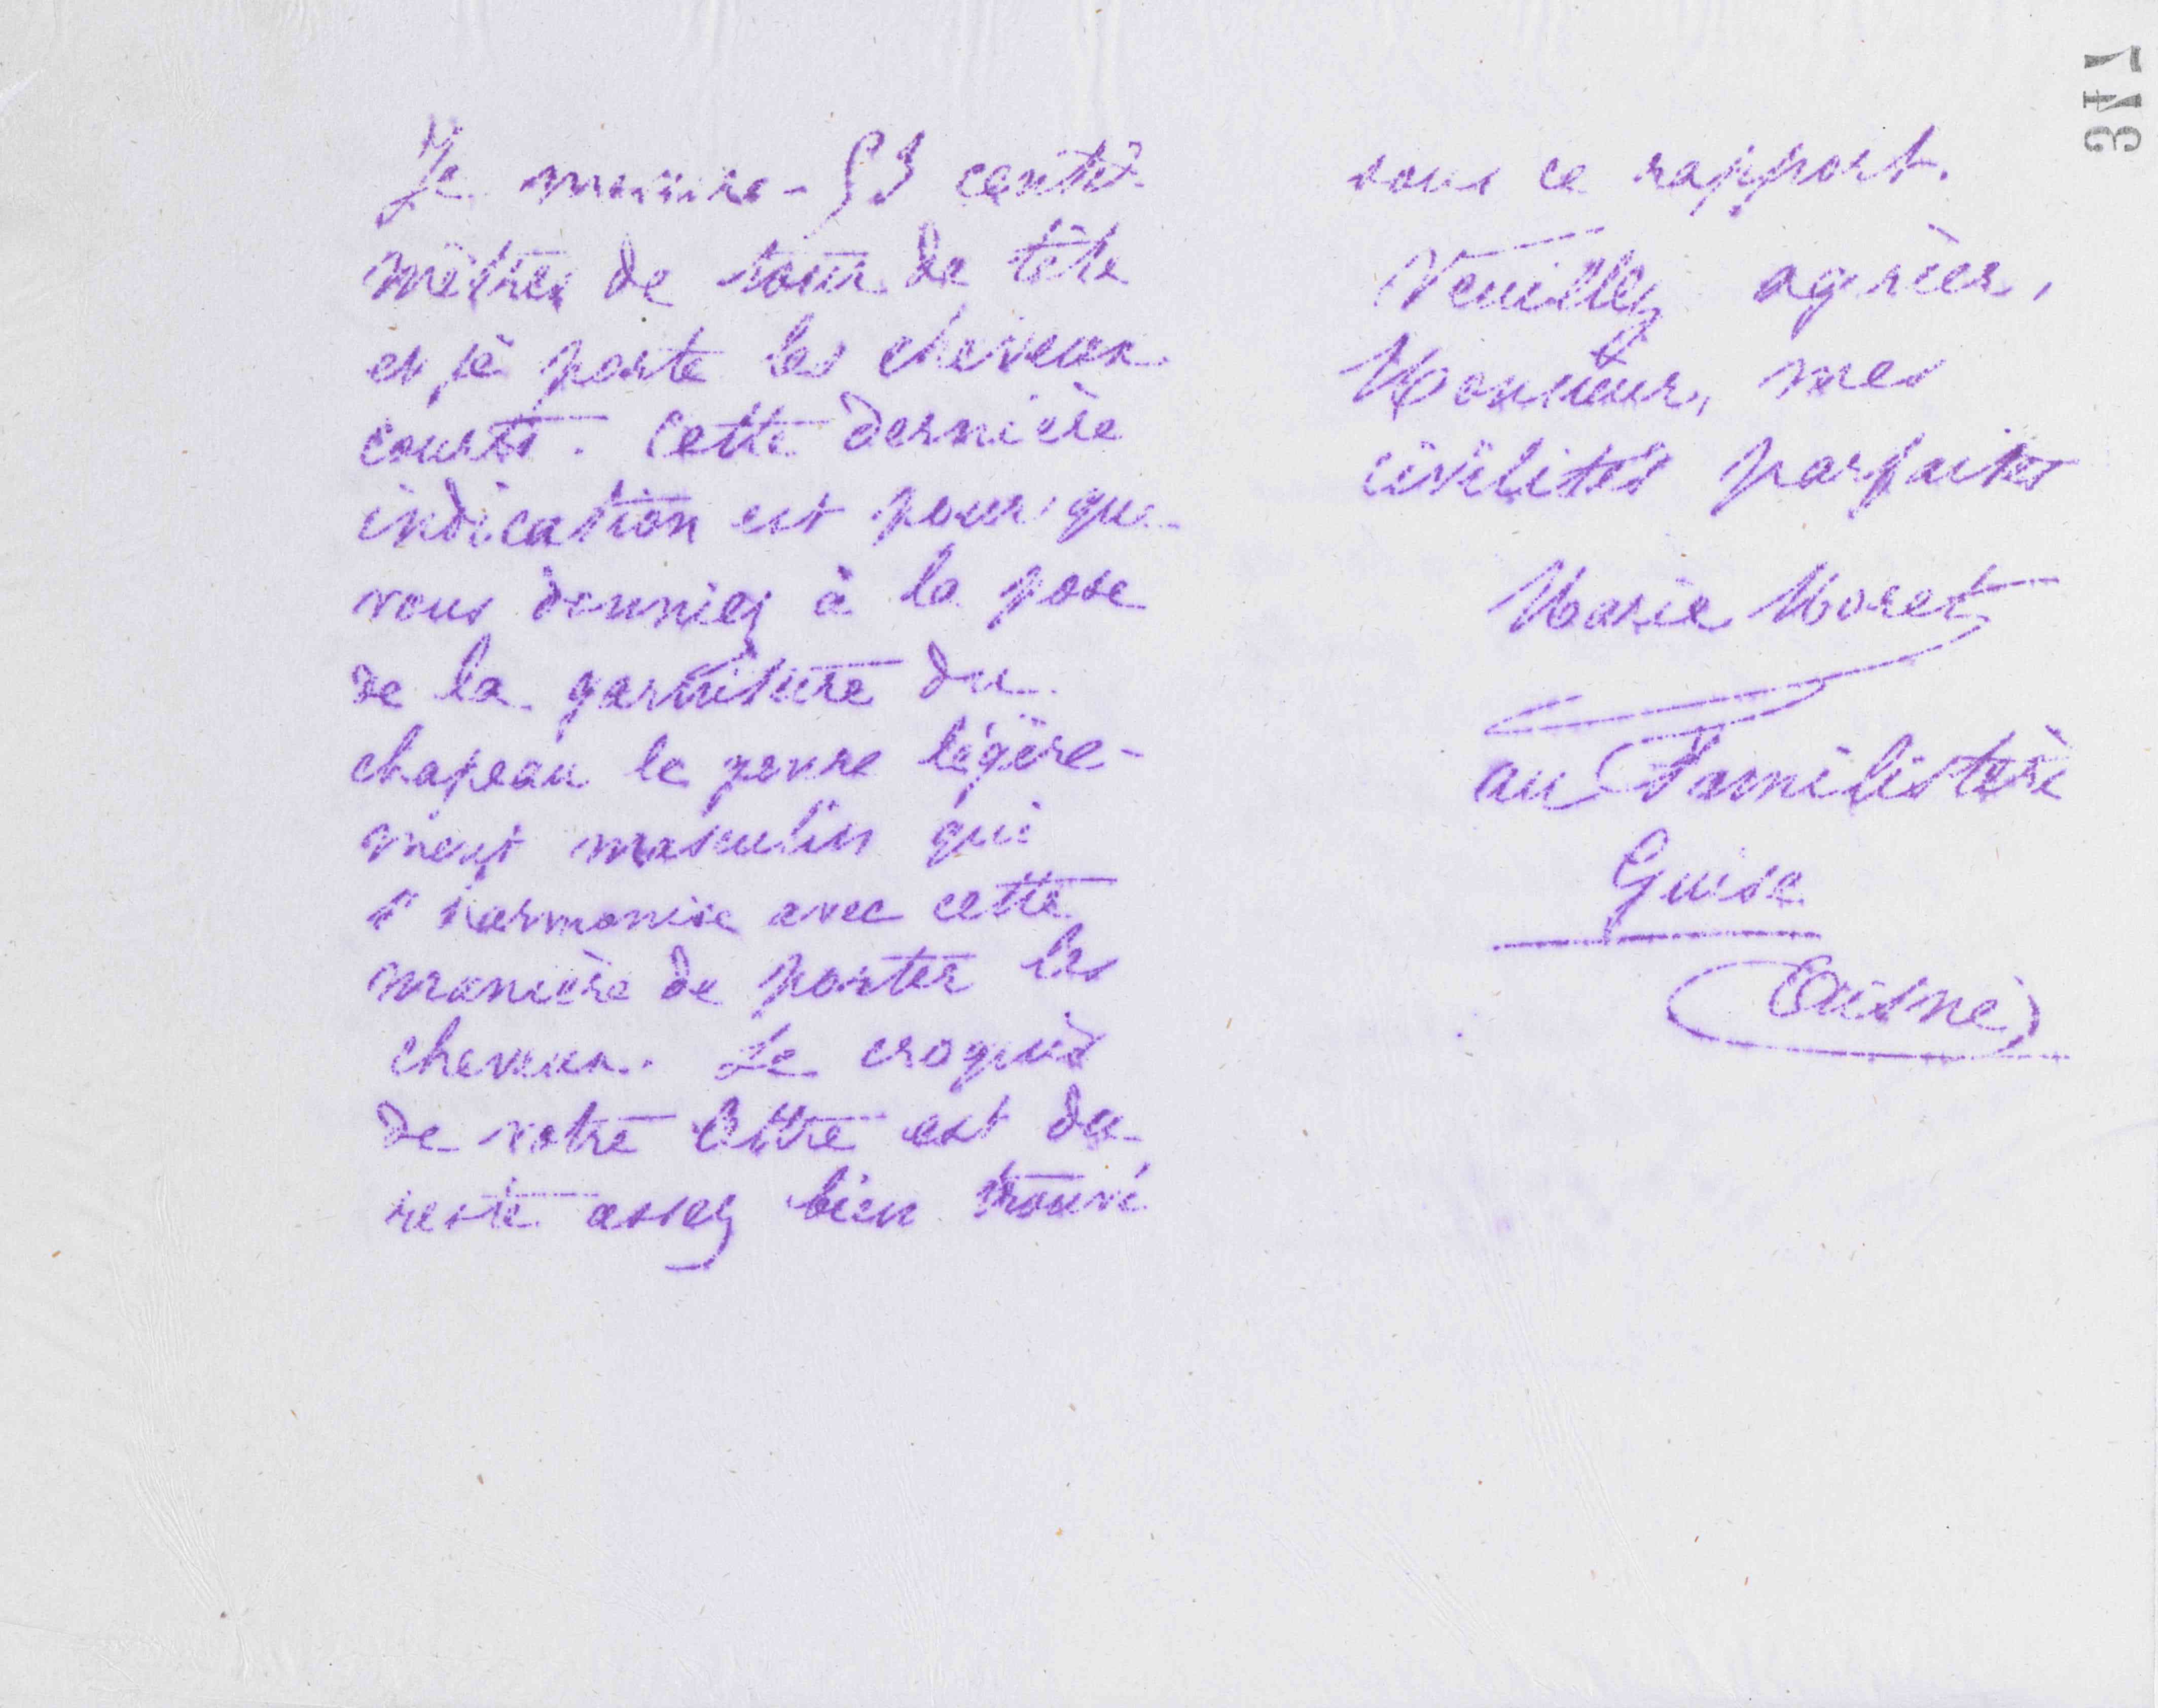 Je mesure 53 centi-
mètres de tour de tête
et je porte les cheveux
courts. Cette dernière
indication est pour que
vous donniez à la pose
de la garniture du
chapeau le genre légère-
ment masculin qui
s'harmonise avec cette
manière de porter les
cheveux. Le croquis
de votre lettre est du
reste assez bien trouvé
sous ce rapport.
Veuillez agréer,
Monsieur, mes
civilités parfaites
Marie Moret
au Familistère
Guise
(Aisne)
347